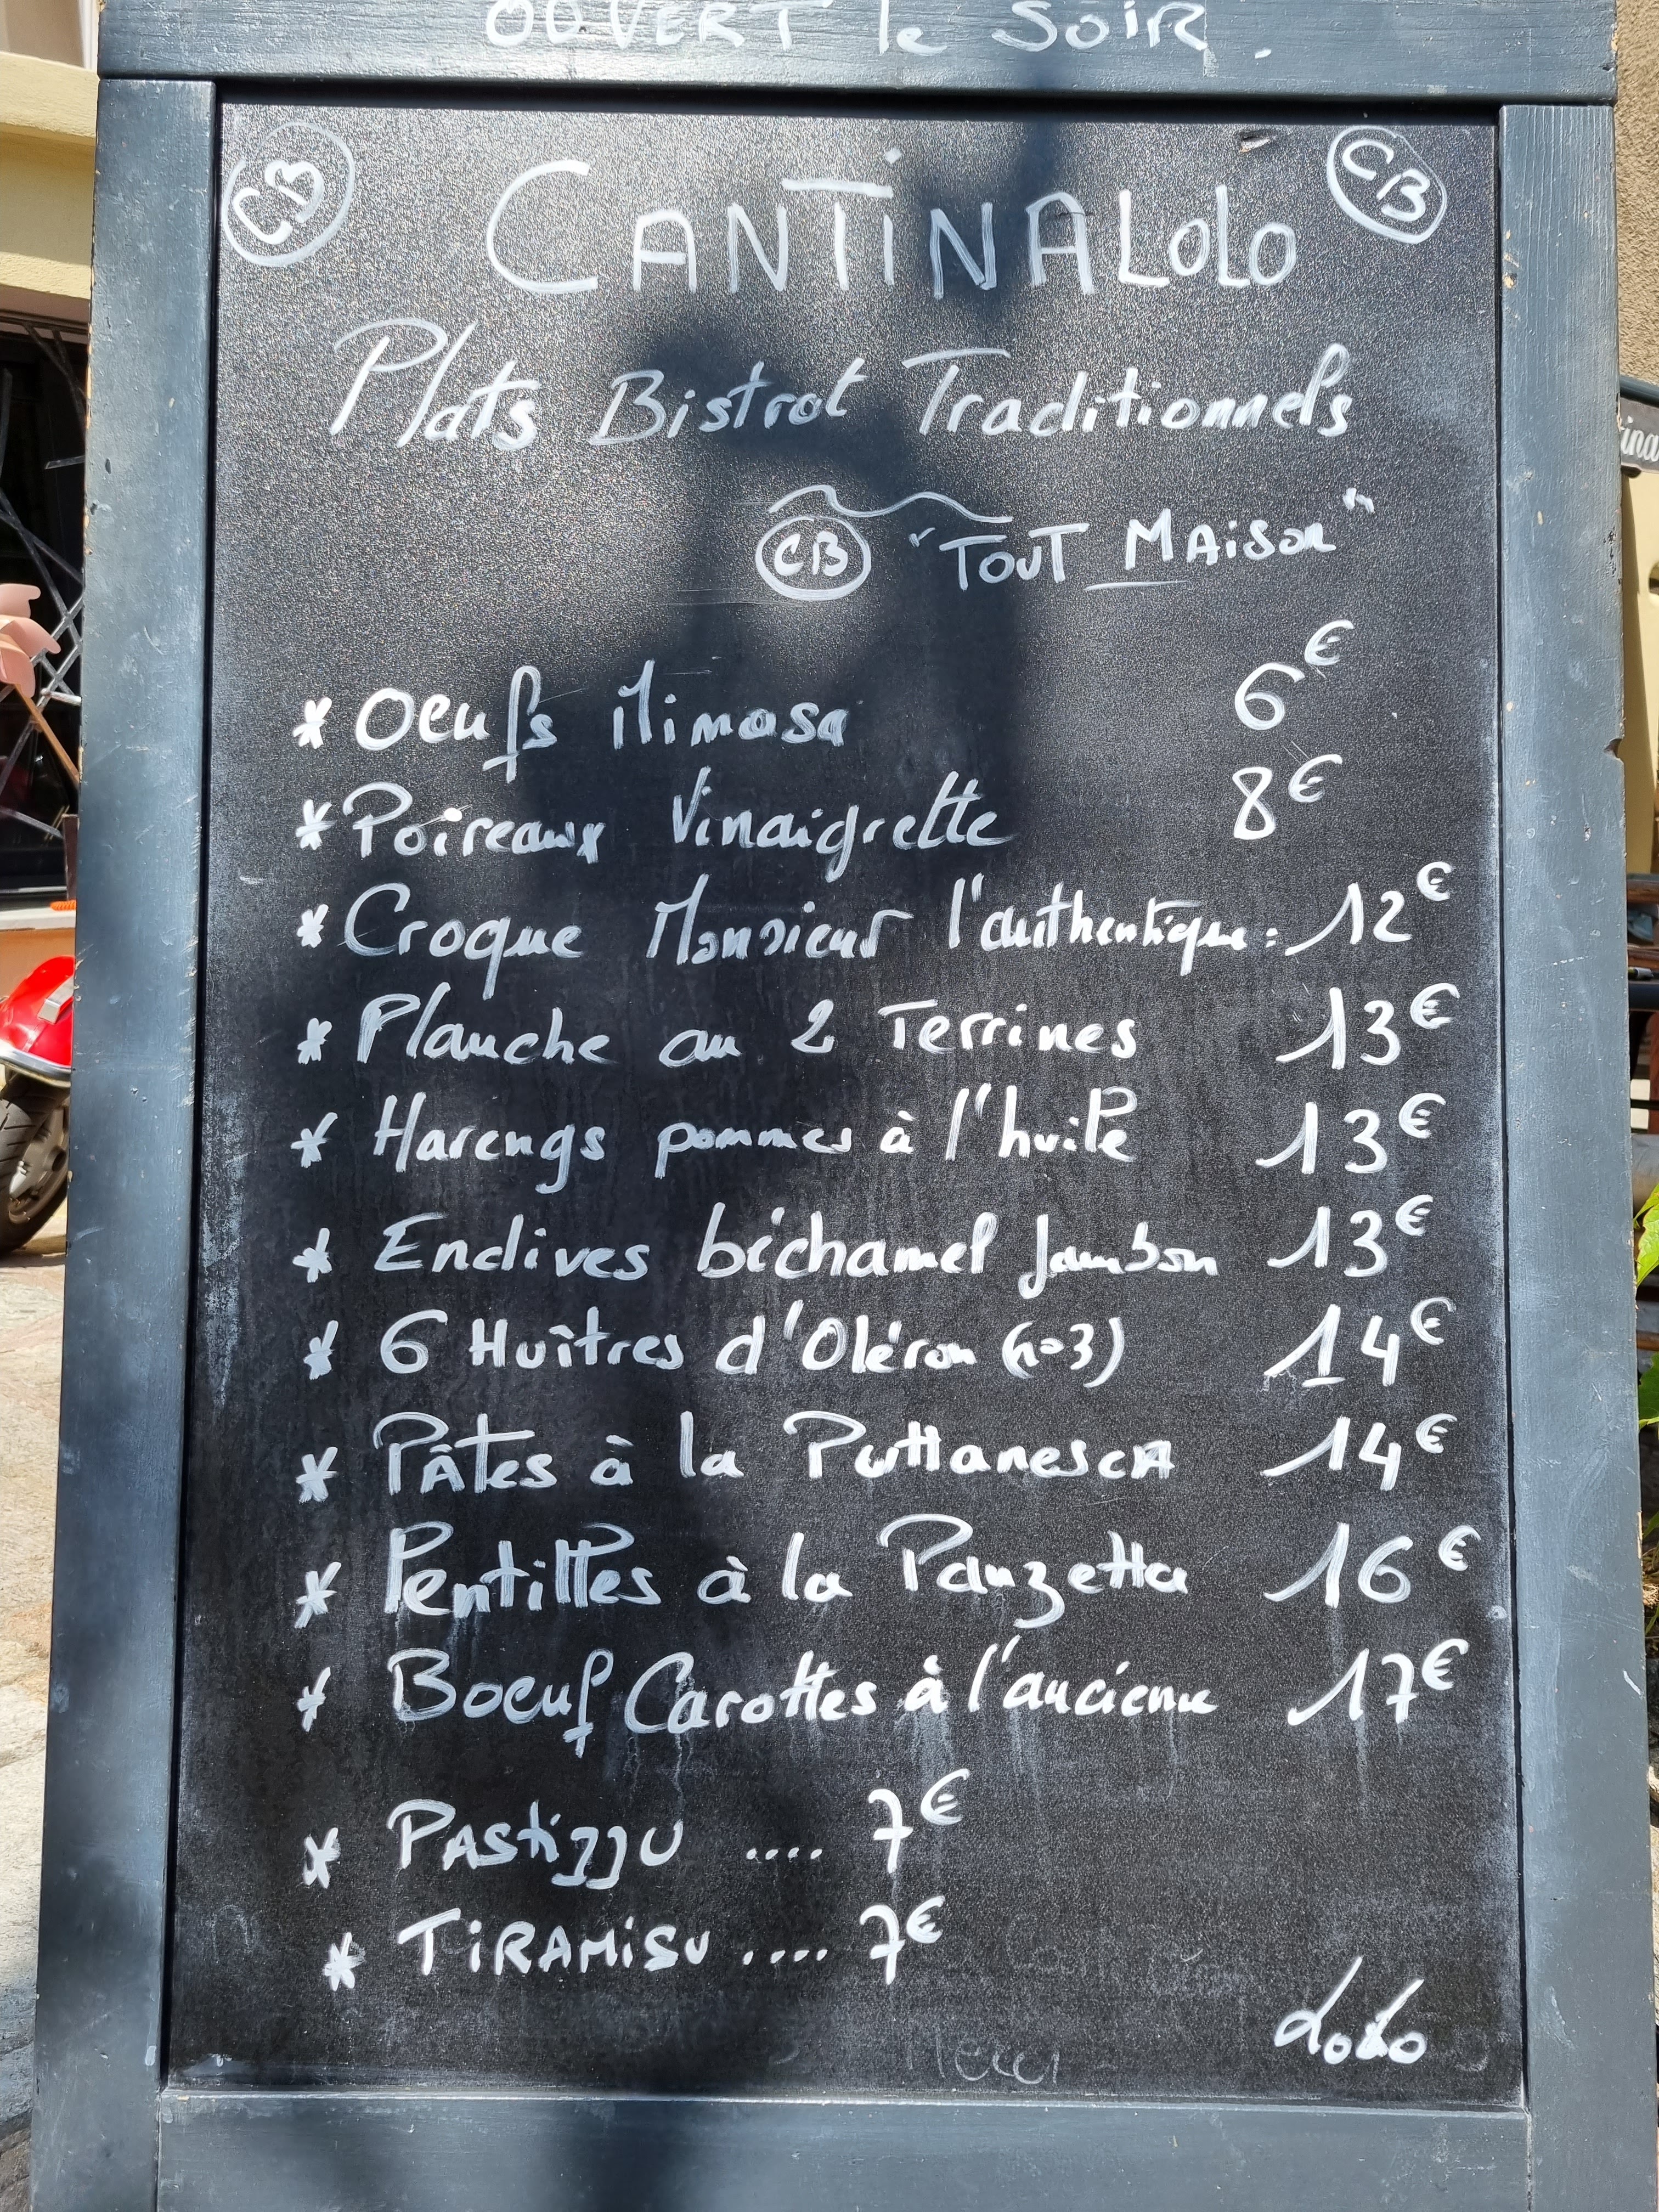 OUVERT le SOIR.
CB CANTINALOLO CB
Plats Bistrot Traditionnels
CB "TOUT MAISON"
* Oeufs Mimosa 6€
* Poireaux Vinaigrette 8€
* Croque Monsieur l'authentique: 12€
* Planche au 2 Terrines 13€
* Harengs pommes à l'huile 13€
* Endives béchamel Jambon 13€
* 6 Huîtres d'Oléron (no3) 14€
* PÂtes à la PuttanescA 14€
* Lentilles à la Panzetta 16€
* Boeuf Carottes à l'ancienne 17€
* PAStizzU .... 7€
* TiRAMiSU .... 7€
LoLo
Merci